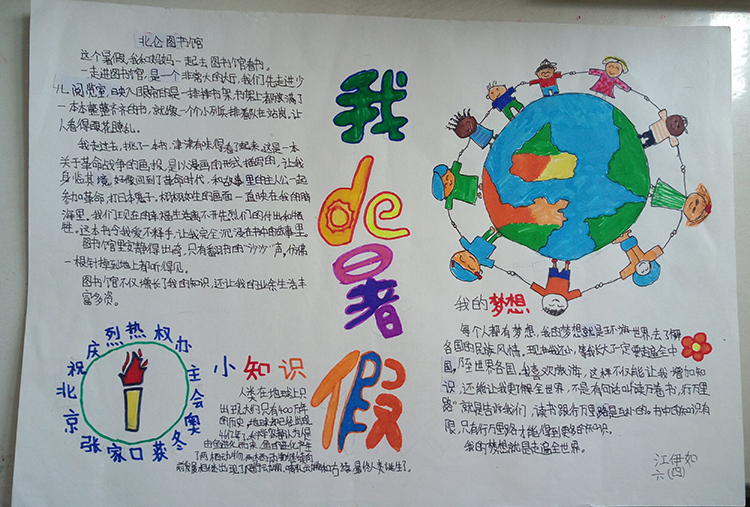 北仑图书馆
这个暑假,我和妈妈一起去图书馆看书。
一走进图书馆,是一个非常大的大厅,我们先走进少
儿阅览室,映入眼帘的是一排排书架,书架上都摆满了
一本本整整齐齐的书,就像一个个小列兵排着队在站岗,让
人看得眼花瞭乱。
我走过去,挑了一本书,津津有味得看了起来,这是一本
关于革命战争的画报,是以漫画的形式描写的,让我
身临其境,好像回到了革命时代,和故事里的主人公一起
参加革命,打日本鬼子,栩栩如生的画面一直映在我的脑
海里。我们现在的幸福生活离不开先烈们的付出和牺
牲。这本书令我爱不释手,让我完全沉浸在书中的故事里。
图书馆里安静得出奇,只有翻书的“沙沙”声,仿佛
一根针掉到地上都听得见。
图书馆不仅增长了我的知识,还让我的业余生活丰
富多资。
我
de
暑
假
我的梦想
每个人都有梦想,我的梦想就是环游世界,去了解
各国的民族风情。现在我还小,等我长大了一定要走遍全中
国,乃至世界各国,我喜欢旅游,这样不仅能让我增加知
识,还能让我更了解全世界,不是有句话叫“读万卷书,行万里
路”就是告诉我们,读书跟行万里路是互补的,书中的知识有
限,只有行万里路才能得到更多的知识。
我的梦想就是走遍全世界。
江伊如
六(四)
庆烈热祝
北京张家口获
权办主会奥冬
小知识
人类在地球上只
出现大约只有400万年
的历史,地球却已经出现